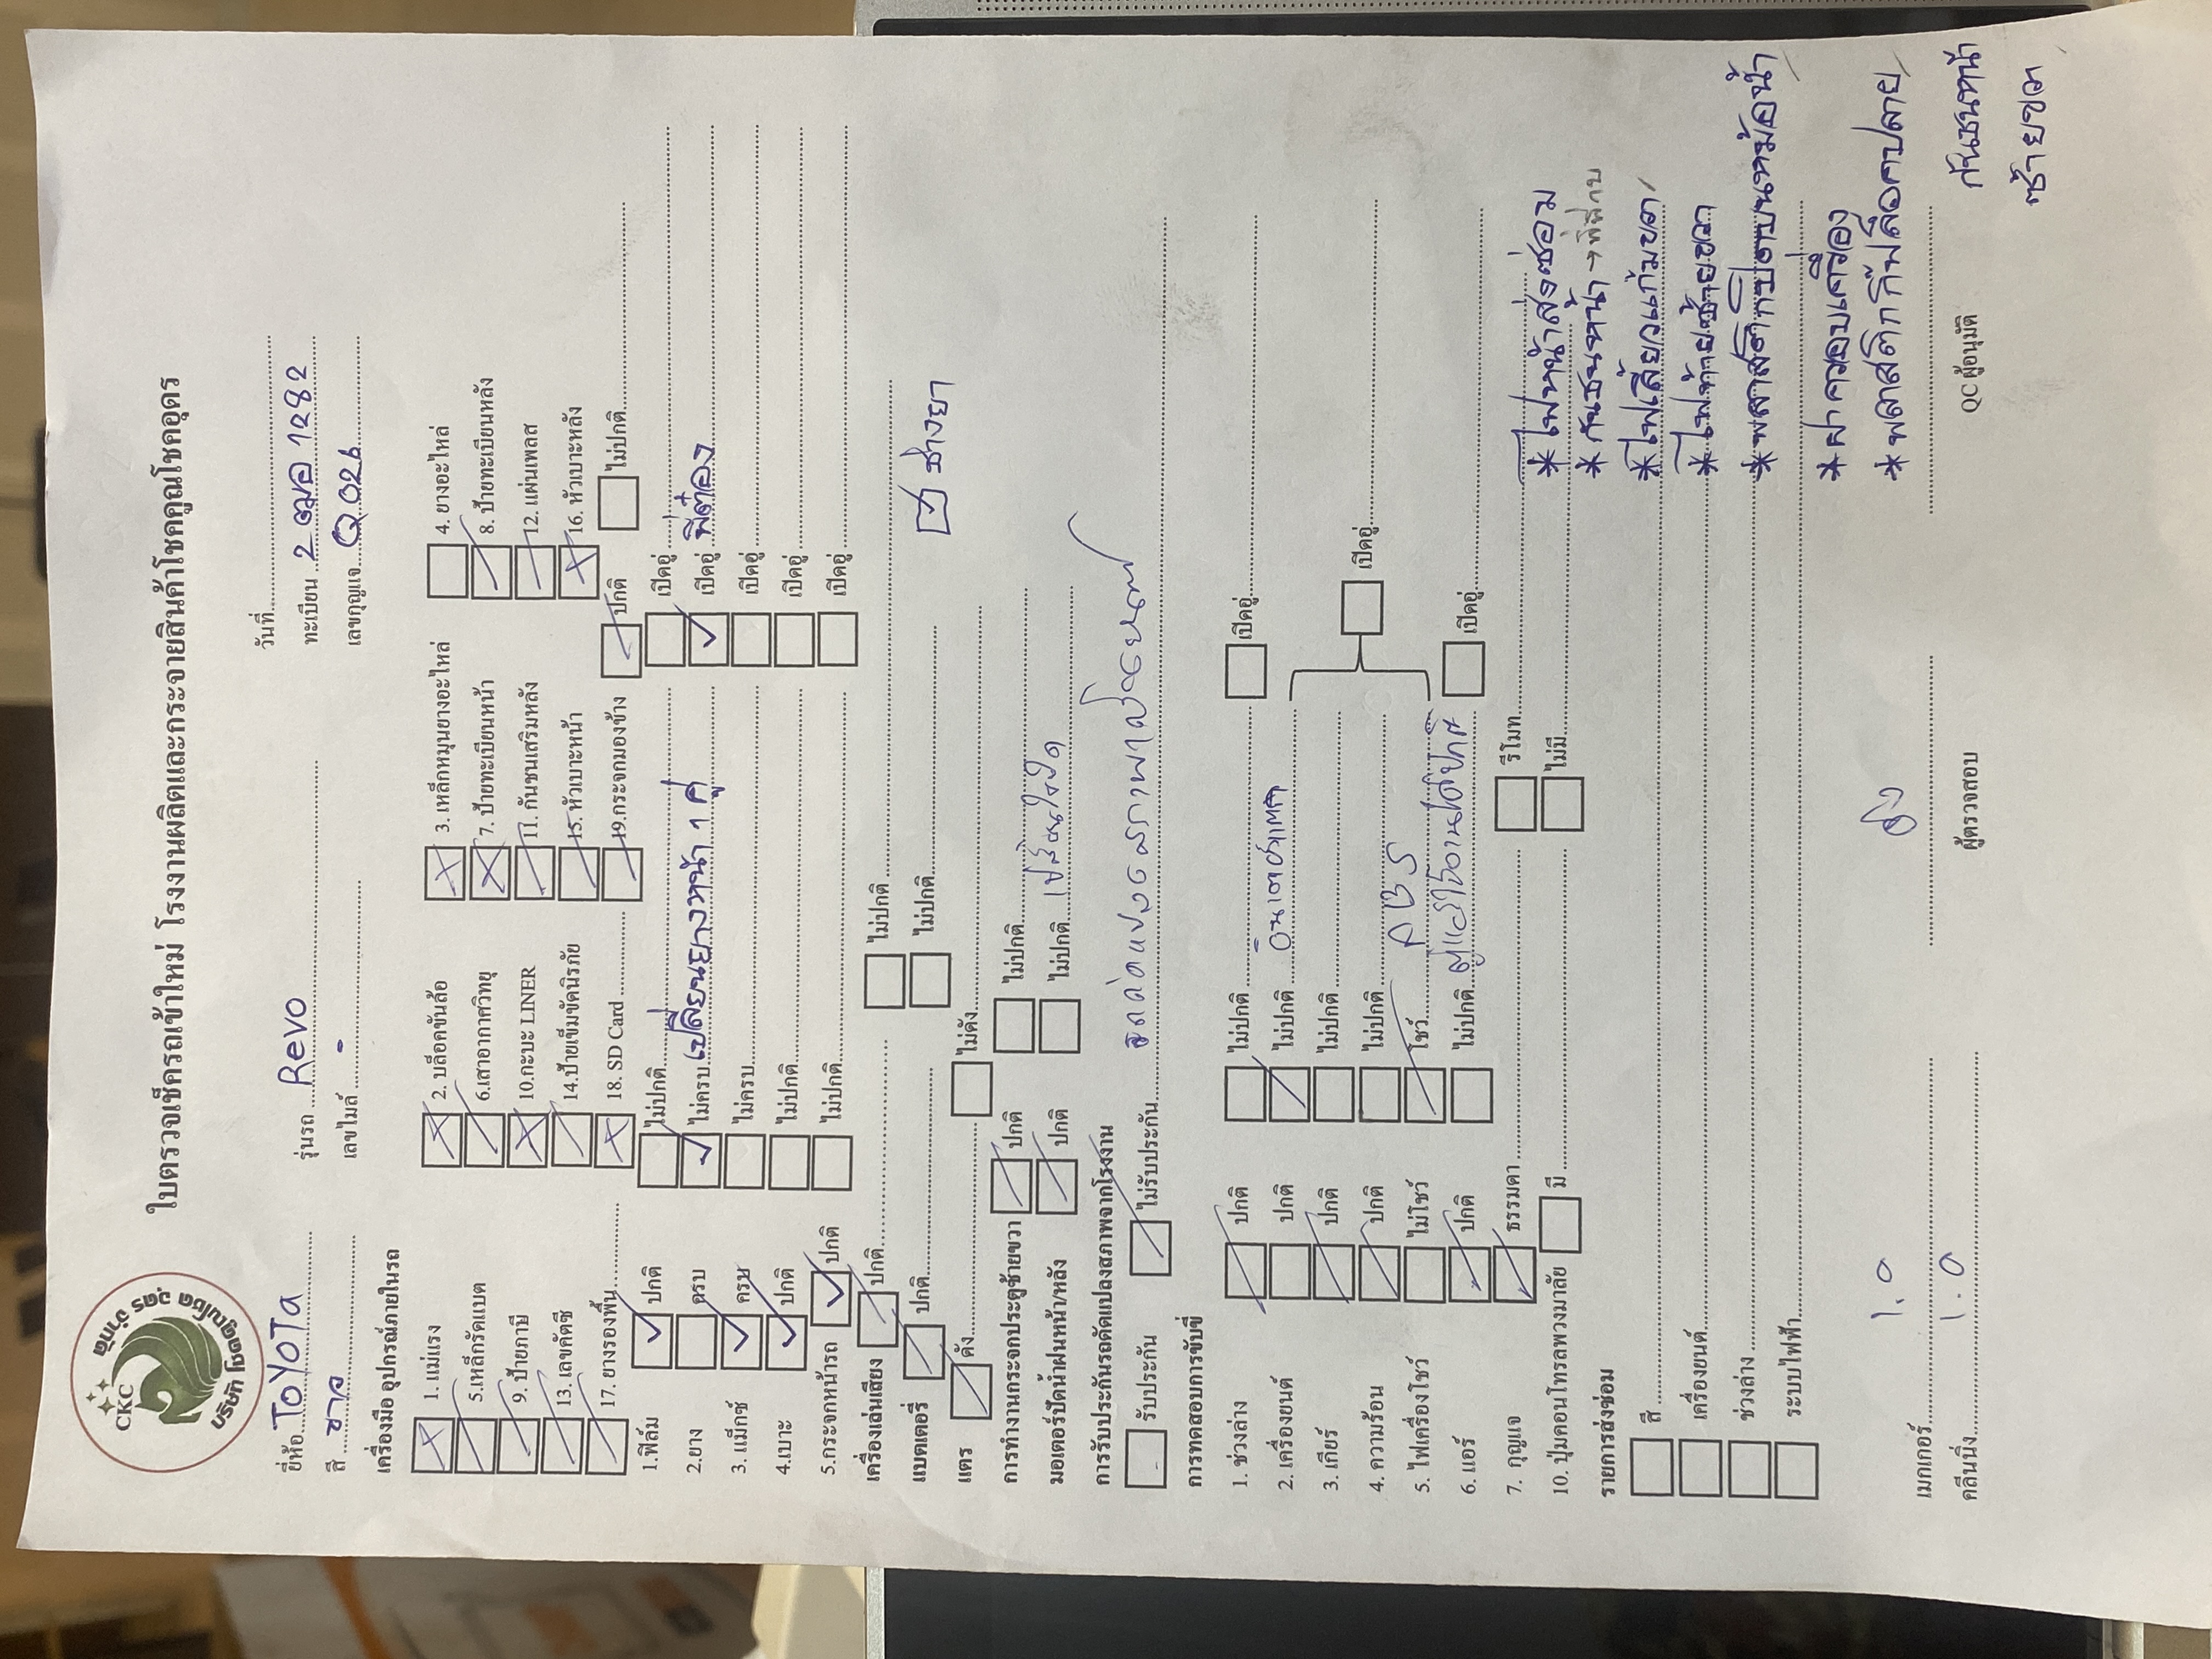 CKC
บริษัท โชคคูณโชค อุดร จำกัด
ใบตรวจเช็ครถเข้าใหม่ โรงงานผลิตและกระจายสินค้าโชคคูณโชคอุดร
วันที่
ยี่ห้อ TOYOTA รุ่นรถ Revo ทะเบียน 2 ฒอ 1282
สี ขาว เลขไมล์ - เลขกุญแจ Q026
เครื่องมือ อุปกรณ์ภายในรถ
1. แม่แรง 2. บล็อคขันล้อ 3. เหล็กหมุนยางอะไหล่ 4. ยางอะไหล่
5.เหล็กรัดแบต 6.เสาอากาศวิทยุ 7. ป้ายทะเบียนหน้า 8. ป้ายทะเบียนหลัง
9. ป้ายภาษี 10.กะบะ LINER 11. กันชนเสริมหลัง 12. แผ่นเพลส
13. เลขคัตซี 14.ป้ายเข็มขัดนิรภัย 15. หัวเบาะหน้า 16. หัวเบาะหลัง
17. ยางรองพื้น 18. SD Card 19.กระจกมองข้าง ปกติ ไม่ปกติ
1.ฟิล์ม ปกติ ไม่ปกติ เปิดอู่
2.ยาง ครบ ไม่ครบ เปลี่ยนยางหน้า 1 คู่ เปิดอู่ พี่ต๋อง
3. แม็กซ์ ครบ ไม่ครบ เปิดอู่
4.เบาะ ปกติ ไม่ปกติ เปิดอู่
5.กระจกหน้ารถ ปกติ ไม่ปกติ เปิดอู่
เครื่องเล่นเสียง ปกติ ไม่ปกติ
แบตเตอรี่ ปกติ ไม่ปกติ ช่างยา
แตร ดัง ไม่ดัง
การทำงานกระจกประตูซ้ายขวา ปกติ ไม่ปกติ
มอเตอร์ปัดน้ำฝนหน้า/หลัง ปกติ ไม่ปกติ เปลี่ยนใบปัด
การรับประกันรถดัดแปลงสภาพจากโรงงาน
รับประกัน ไม่รับประกัน
การทดสอบการขับขี่
1. ช่วงล่าง ปกติ ไม่ปกติ เปิดอู่
2. เครื่องยนต์ ปกติ ไม่ปกติ
3. เกียร์ ปกติ ไม่ปกติ
4. ความร้อน ปกติ ไม่ปกติ เปิดอู่
5. ไฟเครื่องโชว์ ไม่โชว์ โชว์ ABS
6. แอร์ ปกติ ไม่ปกติ เปิดอู่
7. กุญแจ ธรรมดา รีโมท
10. ปุ่มคอนโทรลพวงมาลัย มี ไม่มี
รายการส่งซ่อม
* ไฟหน้าส่งซ่อม
* กันชนหน้า
สี * ไฟเลี้ยวแก้มขวา
เครื่องยนต์ * ไฟท้ายซ้ายขวา
ช่วงล่าง * พลาสติกปิดบนหม้อน้ำ
ระบบไฟฟ้า
* ฝาครอบเครื่อง
* พลาสติกกิ๊ฟล็อคปลาย
กันชนหน้า
ซ้ายขวา
เมกเกอร์ 1.0
คลีนนิ่ง 1.0 ผู้ตรวจสอบ QC ผู้อนุมัติ